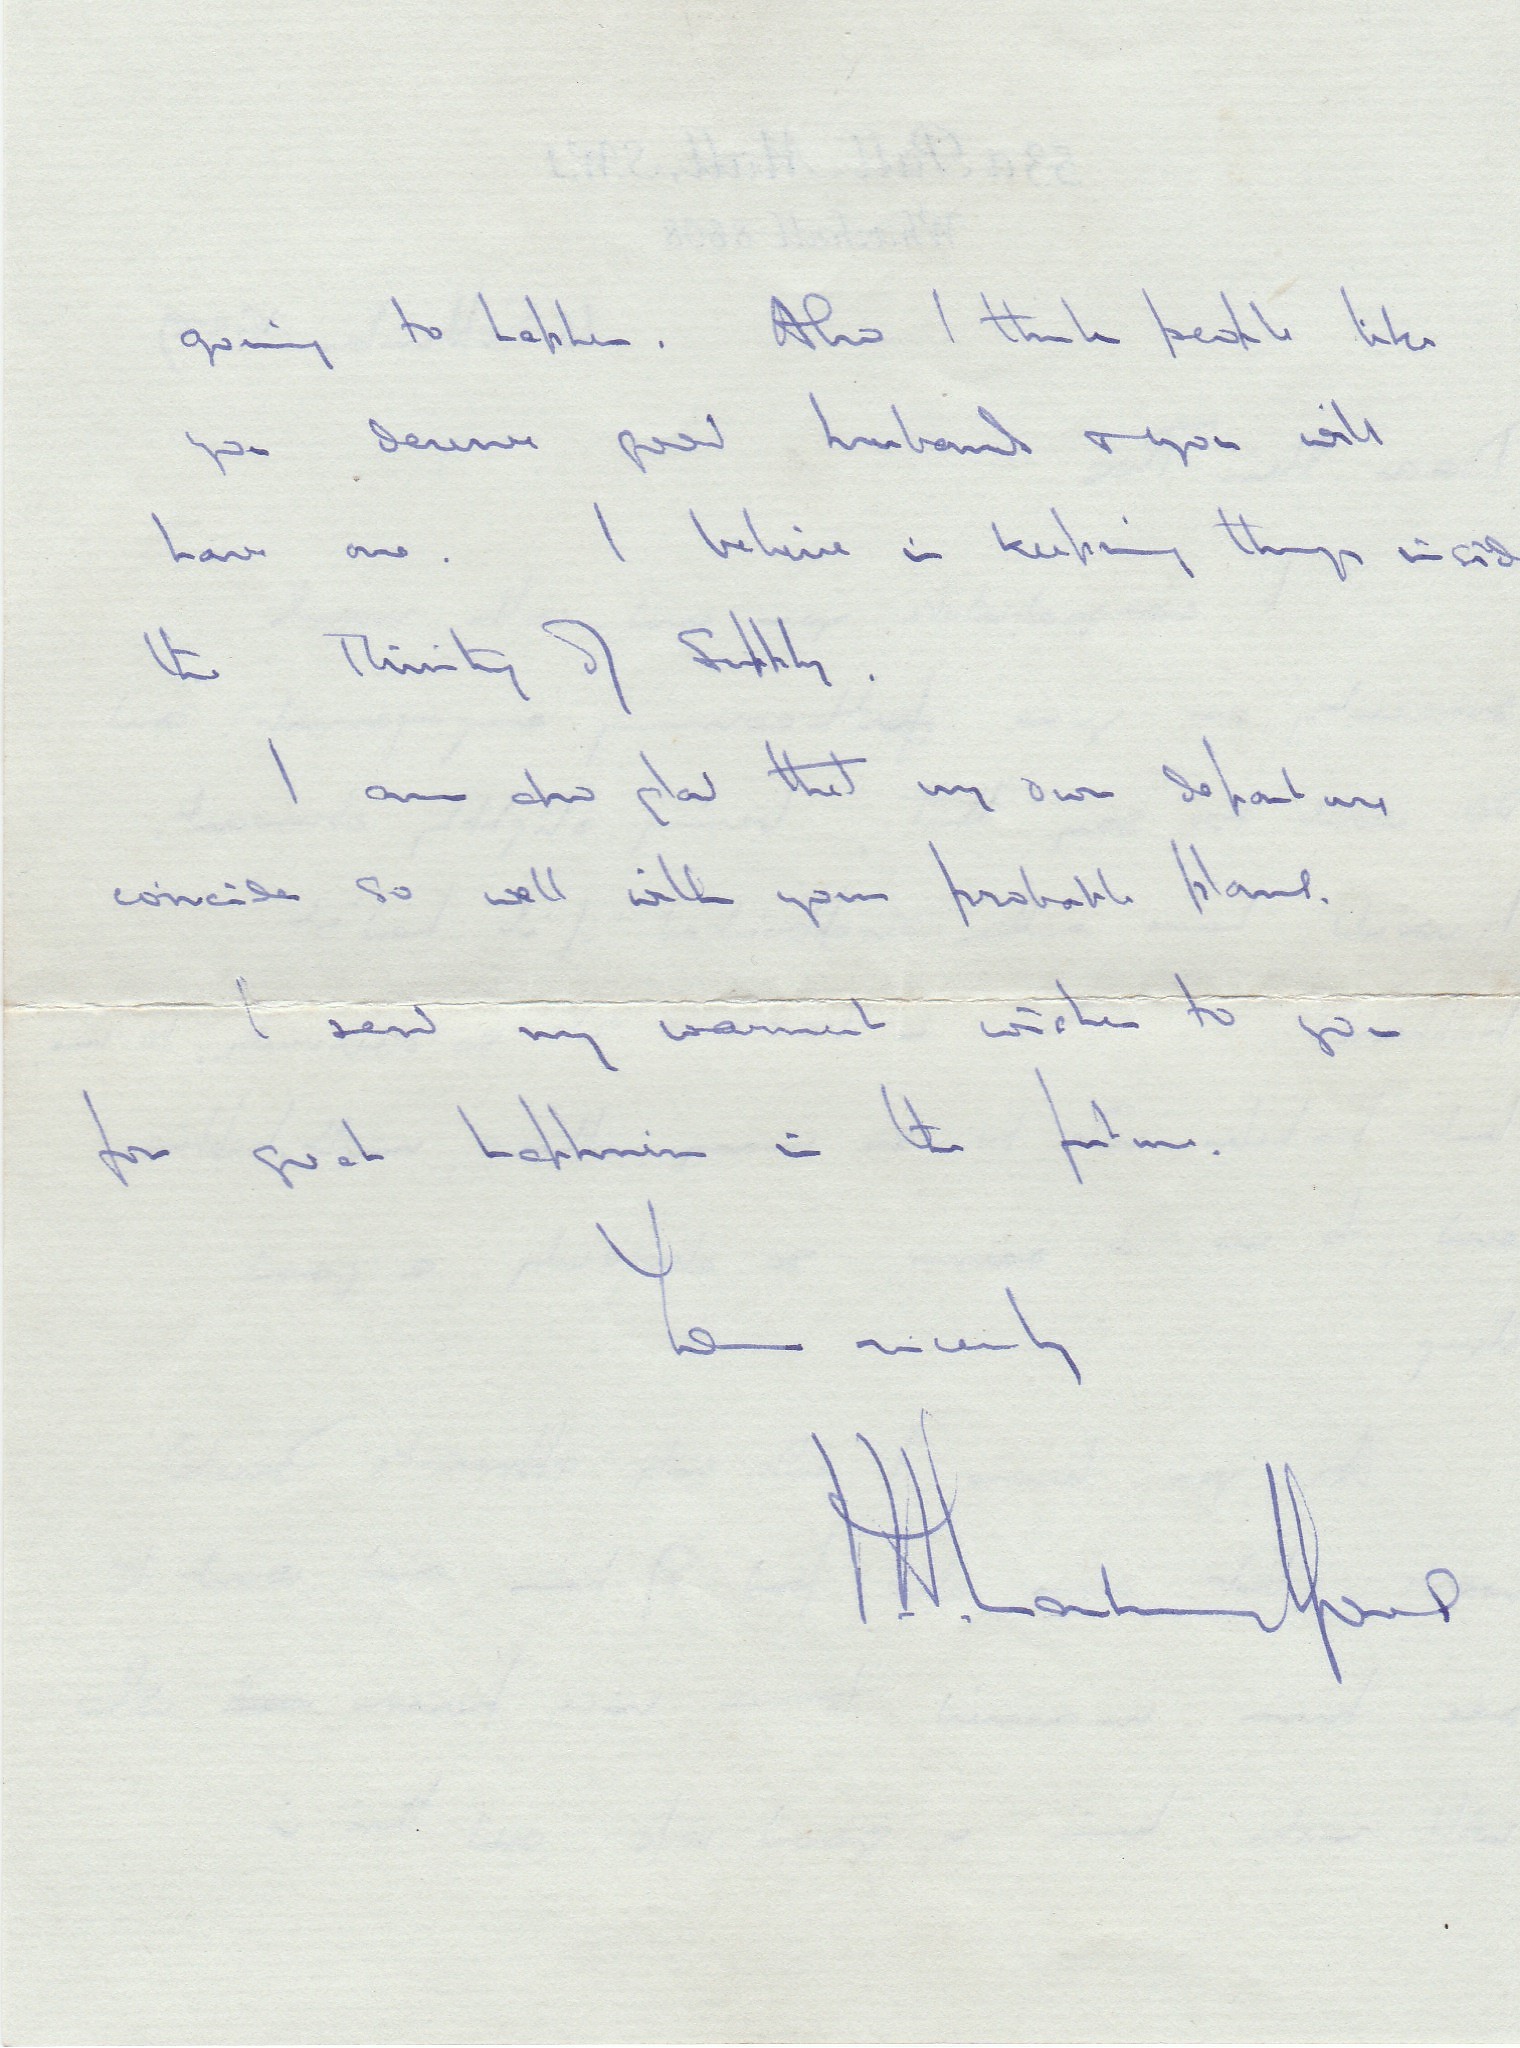 going to happen. Also I think people like
you deserve good husbands & you will
have one. I believe in keeping things inside
the Ministry of Supply.
I am also glad that my own departure
coincides so well with your probable plans.
I send my warmest wishes to you
for great happiness in the future.
Yours sincerely